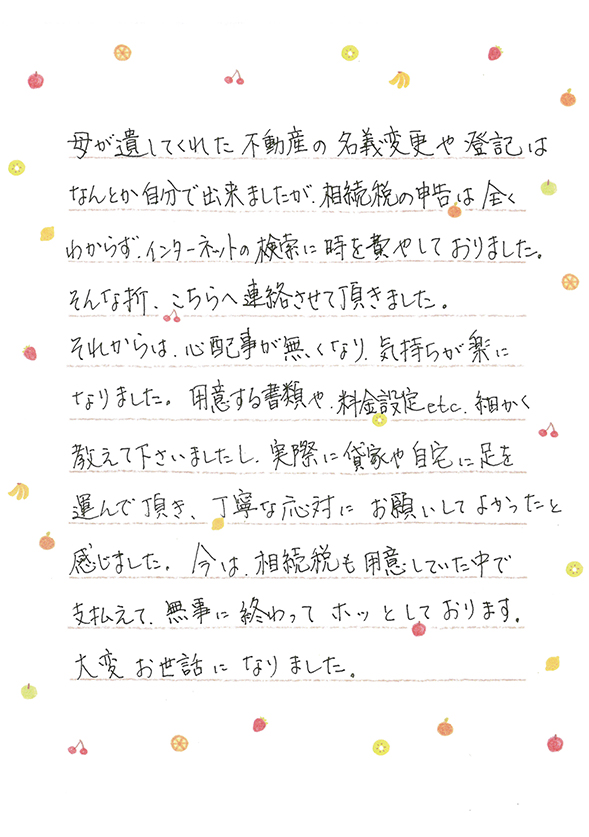 母が遺してくれた不動産の名義変更や登記は
なんとか自分で出来ましたが、相続税の申告は全く
わからず、インターネットの検索に時を費やしておりました。
そんな折、こちらへ連絡させて頂きました。
それからは、心配事が無くなり、気持ちが楽に
なりました。用意する書類や、料金設定etc、細かく
教えて下さいましたし、実際に貸家や自宅に足を
運んで頂き、丁寧な応対にお願いしてよかったと
感じました。今は、相続税も用意していた中で
支払えて、無事に終わってホッとしております。
大変お世話になりました。